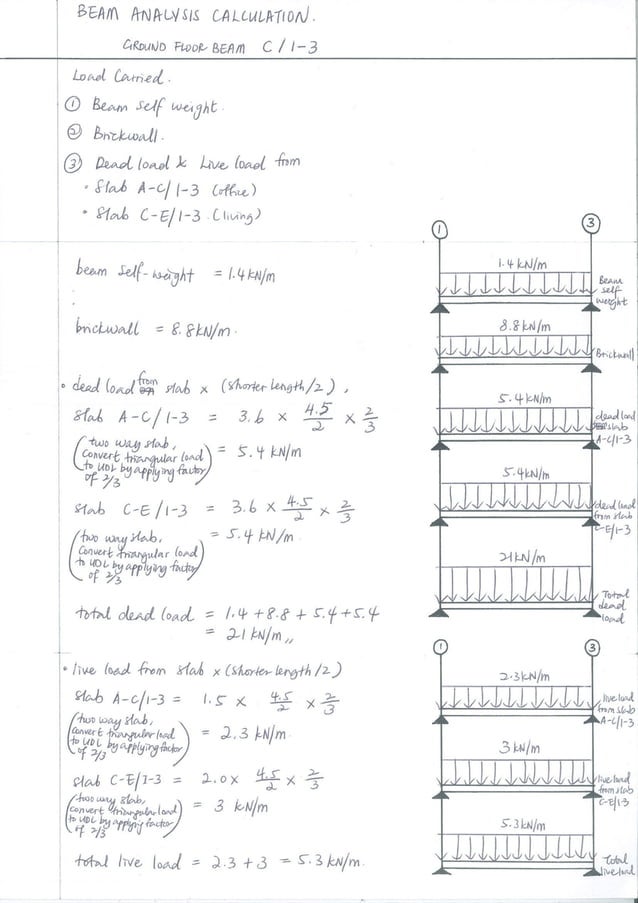 BEAM ANALYSIS CALCULATION.
GROUND FLOOR BEAM C/1-3
Load Carried.
① Beam self weight.
② Brickwall.
③ Dead load & Live load from
• Slab A-C/1-3 (office)
• Slab C-E/1-3 (living)
beam self-weight = 1.4 kN/m
brickwall = 8.8 kN/m.
• dead load from slab x (shorter length/2),
slab A-C/1-3 = 3.6 × 4.5/2 × 2/3
(two way slab,
convert triangular load
to UDL by applying factor
of 2/3)
= 5.4 kN/m
slab C-E/1-3 = 3.6 × 4.5/2 × 2/3
(two way slab,
convert triangular load
to UDL by applying factor
of 2/3)
= 5.4 kN/m.
total dead load = 1.4 + 8.8 + 5.4 + 5.4
= 21 kN/m,,
• live load from slab x (shorter length/2)
slab A-C/1-3 = 1.5 × 4.5/2 × 2/3
(two way slab,
convert triangular load
to UDL by applying factor
of 2/3)
= 2.3 kN/m.
slab C-E/1-3 = 2.0 × 4.5/2 × 2/3
(two way slab,
convert triangular load
to UDL by applying factor
of 2/3)
= 3 kN/m
total live load = 2.3 + 3 = 5.3 kN/m.
1 3
1.4 kN/m
Beam
self
weight
8.8 kN/m
Brickwall
5.4 kN/m
dead load
slab
A-C/1-3
5.4 kN/m
dead load
from slab
C-E/1-3
21 kN/m
Total
dead
load
1 3
2.3 kN/m
live load
from slab
A-C/1-3
3 kN/m
live load
from slab
C-E/1-3
5.3 kN/m
Total
live load